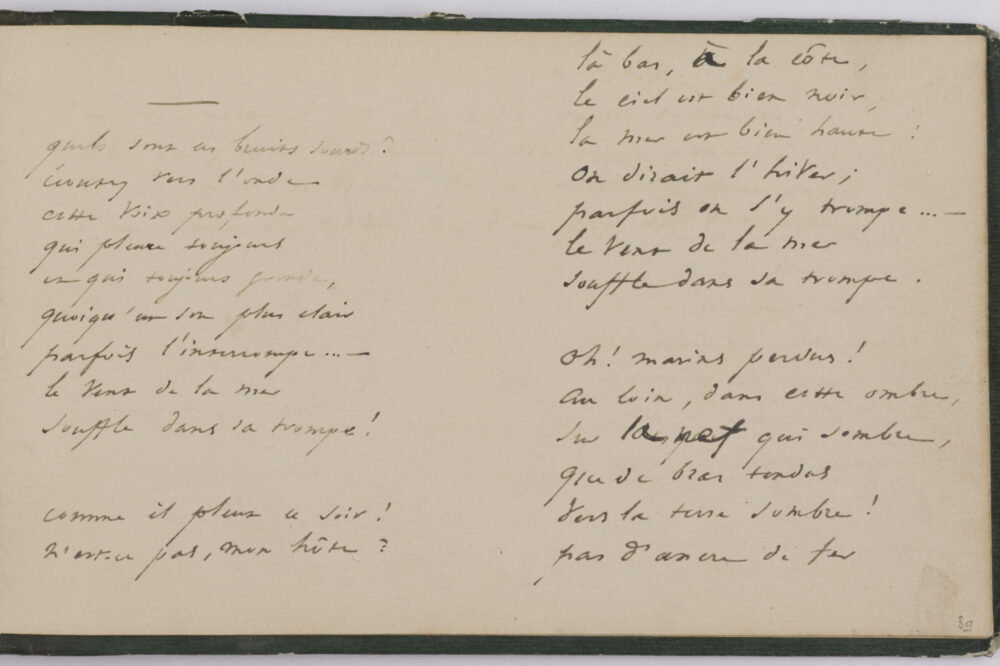 quels sont ces bruits sourds ?
écoutez vers l'onde
cette voix profonde
qui pleure toujours
et qui toujours gronde,
quoiqu'un son plus clair
parfois l'interrompe... —
le vent de la mer
souffle dans sa trompe !
comme il pleut ce soir !
n'est-ce pas, mon hôte ?
là bas, à la côte,
le ciel est bien noir,
la mer est bien haute !
on dirait l'hiver ;
parfois on s'y trompe... —
le vent de la mer
souffle dans sa trompe .
oh ! marins perdus !
au loin, dans cette ombre,
sur la nef qui sombre,
que de bras tendus
vers la terre sombre !
pas d'ancre de fer
89